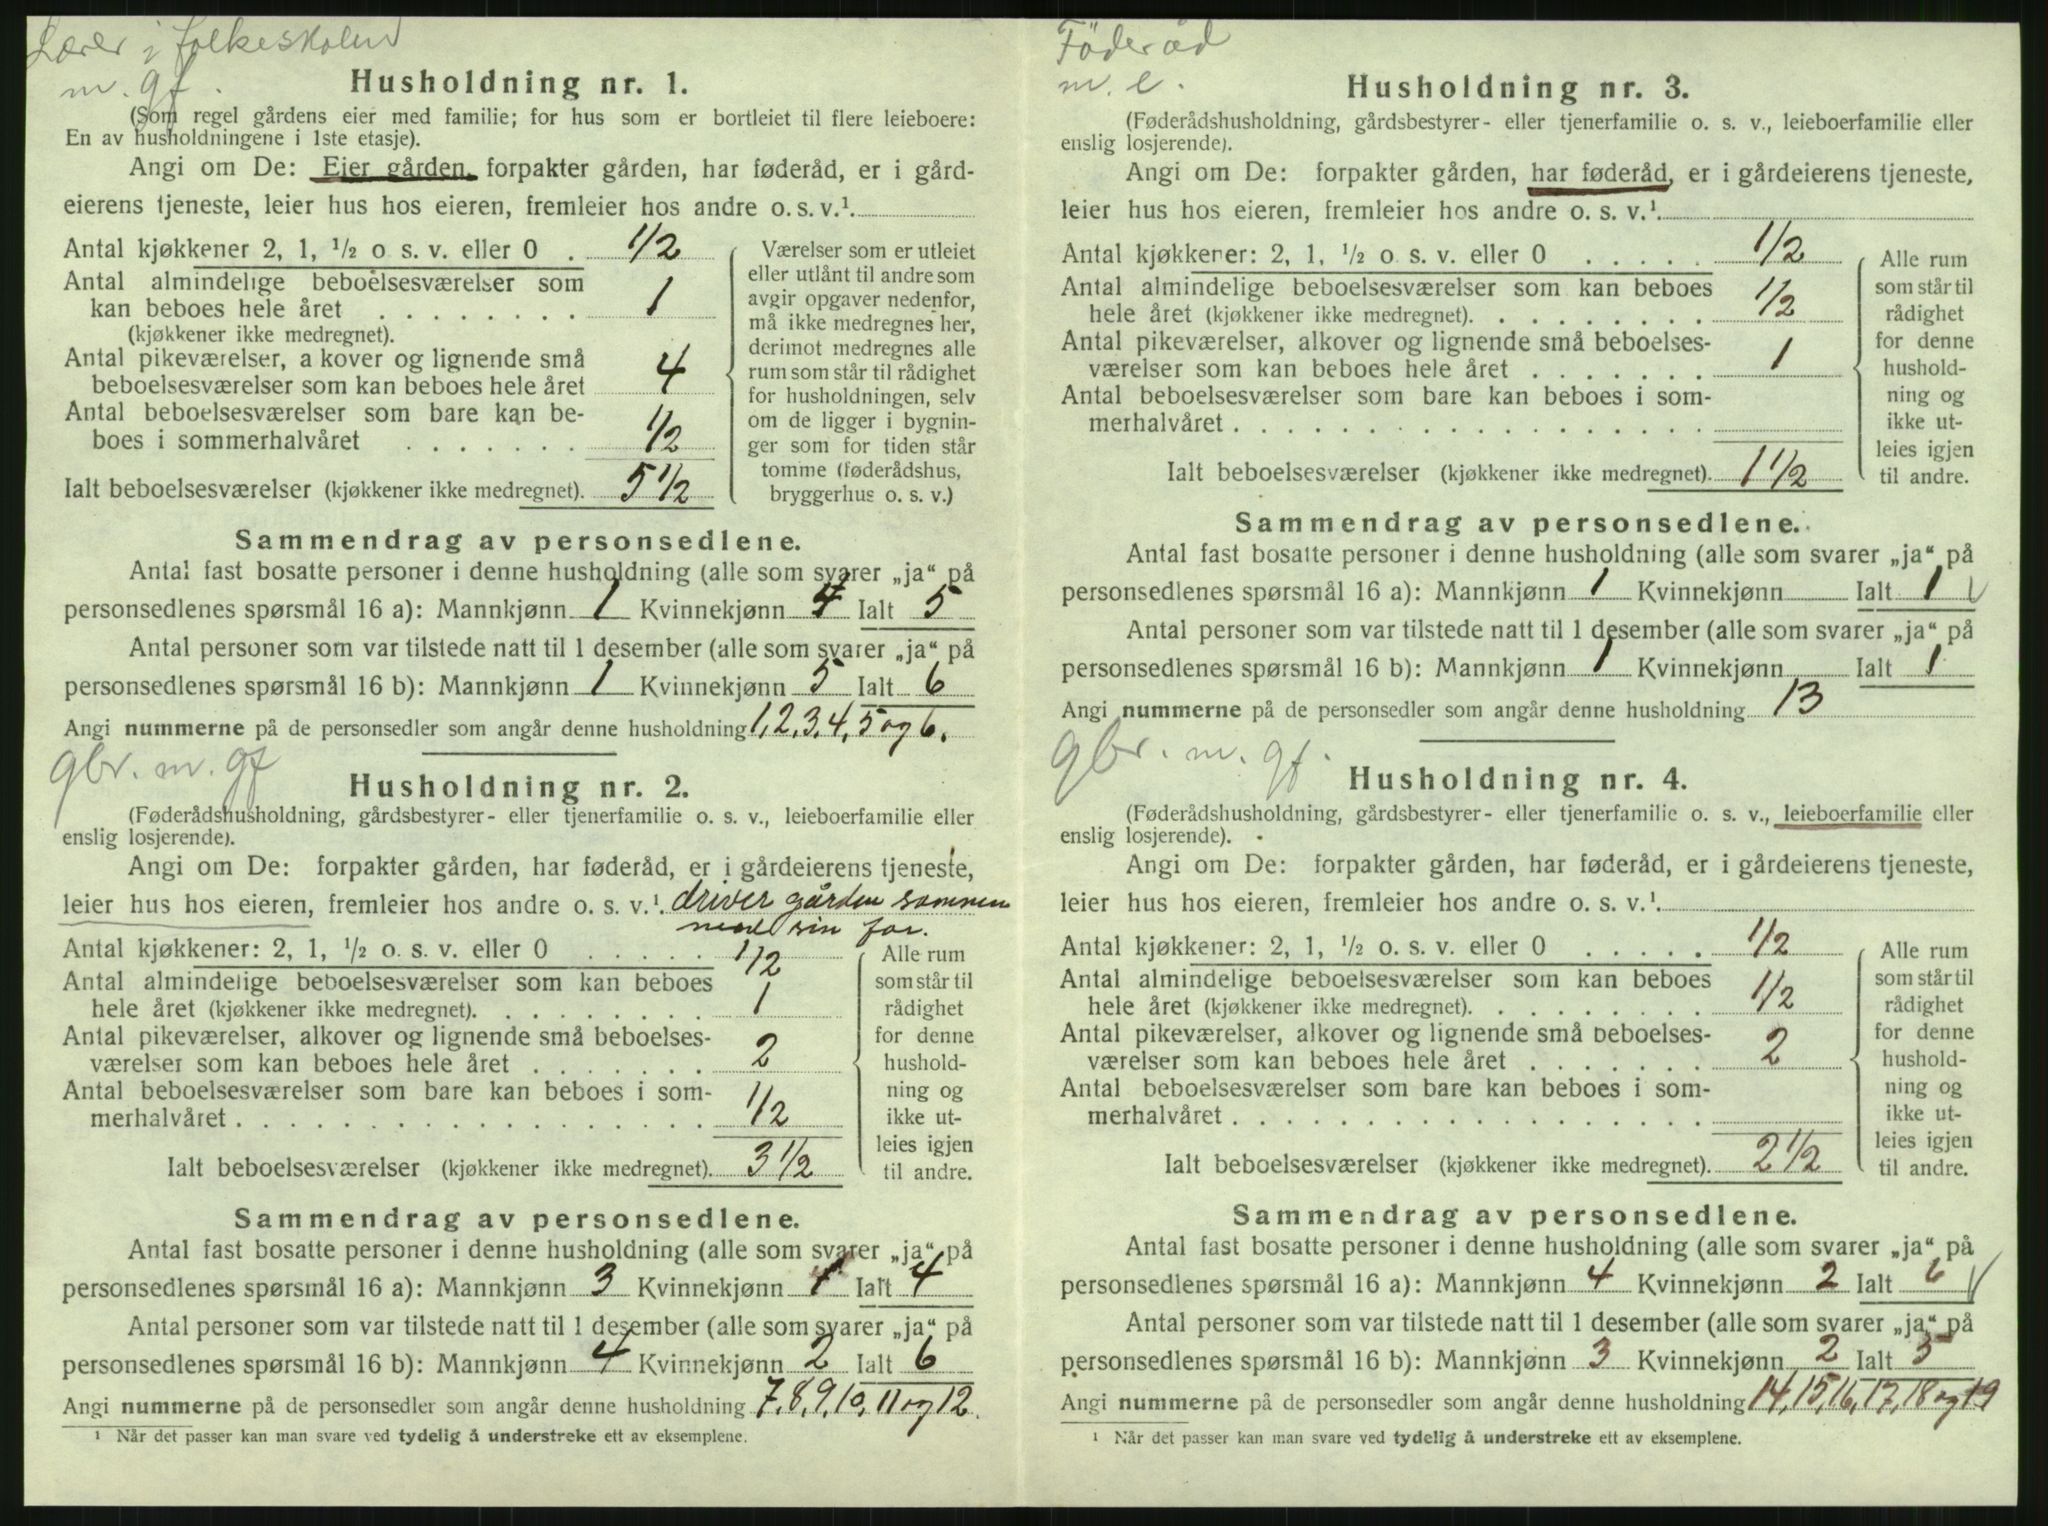 Lærer i folkeskolen
m. gf.
Husholdning nr. 1.
(Som regel gårdens eier med familie; for hus som er bortleiet til flere leieboere:
En av husholdningene i 1ste etasje).
Angi om De: Eier gården, forpakter gården, har føderåd, er i gård-
eierens tjeneste, leier hus hos eieren, fremleier hos andre o. s. v.¹.
Antal kjøkkener 2, 1, ½ o s. v. eller 0 . 1/2
Antal almindelige beboelsesværelser som
kan beboes hele året . . . . . . . . 1
(kjøkkener ikke medregnet).
Antal pikeværelser, a kover og lignende små
beboelsesværelser som kan beboes hele året 4
Antal beboelsesværelser som bare kan be-
boes i sommerhalvåret . . . . . . 1/2
Ialt beboelsesværelser (kjøkkener ikke medregnet). 5 1/2
Værelser som er utleiet
eller utlånt til andre som
avgir opgaver nedenfor,
må ikke medregnes her,
derimot medregnes alle
rum som står til rådighet
for husholdningen, selv
om de ligger i bygnin-
ger som for tiden står
tomme (føderådshus,
bryggerhus o. s. v.)
Sammendrag av personsedlene.
Antal fast bosatte personer i denne husholdning (alle som svarer „ja“ på
personsedlenes spørsmål 16 a): Mannkjønn 1 Kvinnekjønn 4 Ialt 5
Antal personer som var tilstede natt til 1 desember (alle som svarer „ja“ på
personsedlenes spørsmål 16 b): Mannkjønn 1 Kvinnekjønn 5 Ialt 6
Angi nummerne på de personsedler som angår denne husholdning 1, 2, 3, 4, 5 og 6.
gbr. m. gf
Husholdning nr. 2.
(Føderådshusholdning, gårdsbestyrer- eller tjenerfamilie o. s. v., leieboerfamilie eller
enslig losjerende).
Angi om De: forpakter gården, har føderåd, er i gårdeierens tjeneste,
leier hus hos eieren, fremleier hos andre o. s. v.¹. driver gården sammen
med sin far.
Antal kjøkkener: 2, 1, ½ o. s. v. eller 0 . . . . . 1/2
Antal almindelige beboelsesværelser som kan beboes
hele året (kjøkkener ikke medregnet). . . . . . . . . 1
Antal pikeværelser, alkover og lignende små beboelses-
værelser som kan beboes hele året . . . . . . . 2
Antal beboelsesværelser som bare kan beboes i som-
merhalvåret . . . . . . . . . . . . . . . . . . 1/2
Ialt beboelsesværelser (kjøkkener ikke medregnet). 3 1/2
Alle rum
som står til
rådighet
for denne
hushold-
ning og
ikke ut-
leies igjen
til andre.
Sammendrag av personsedlene.
Antal fast bosatte personer i denne husholdning (alle som svarer „ja“ på
personsedlenes spørsmål 16 a): Mannkjønn 3 Kvinnekjønn 1 Ialt 4
Antal personer som var tilstede natt til 1 desember (alle som svarer „ja“ på
personsedlenes spørsmål 16 b): Mannkjønn 4 Kvinnekjønn 2 Ialt 6
Angi nummerne på de personsedler som angår denne husholdning 7, 8, 9, 10, 11 og 12.
¹ Når det passer kan man svare ved tydelig å understreke ett av eksemplene.
Föderåd
m. e.
Husholdning nr. 3.
(Føderådshusholdning, gårdsbestyrer- eller tjenerfamilie o. s. v., leieboerfamilie eller
enslig losjerende).
Angi om De: forpakter gården, har føderåd, er i gårdeierens tjeneste,
leier hus hos eieren, fremleier hos andre o. s. v.¹.
Antal kjøkkener: 2, 1, ½ o s. v. eller 0 . . . . . 1/2
Antal almindelige beboelsesværelser som kan beboes
hele året (kjøkkener ikke medregnet). . . . . . . . . 1/2
Antal pikeværelser, alkover og lignende små beboelses-
værelser som kan beboes hele året . . . . . . . 1
Antal beboelsesværelser som bare kan beboes i som-
merhalvåret . . . . . . . . . . . . . . . . . .
Ialt beboelsesværelser (kjøkkener ikke medregnet). 1 1/2
Alle rum
som står til
rådighet
for denne
hushold-
ning og
ikke ut-
leies igjen
til andre.
Sammendrag av personsedlene.
Antal fast bosatte personer i denne husholdning (alle som svarer „ja“ på
personsedlenes spørsmål 16 a): Mannkjønn 1 Kvinnekjønn Ialt 1 √
Antal personer som var tilstede natt til 1 desember (alle som svarer „ja“ på
personsedlenes spørsmål 16 b): Mannkjønn 1 Kvinnekjønn Ialt 1
Angi nummerne på de personsedler som angår denne husholdning 13
gbr. m. gf.
Husholdning nr. 4.
(Føderådshusholdning, gårdsbestyrer- eller tjenerfamilie o. s. v., leieboerfamilie eller
enslig losjerende).
Angi om De: forpakter gården, har føderåd, er i gårdeierens tjeneste,
leier hus hos eieren, fremleier hos andre o. s. v.¹.
Antal kjøkkener: 2, 1, ½ o. s. v. eller 0 . . . . . 1/2
Antal almindelige beboelsesværelser som kan beboes
hele året (kjøkkener ikke medregnet). . . . . . . . . 1/2
Antal pikeværelser, alkover og lignende små beboelses-
værelser som kan beboes hele året . . . . . . . 2
Antal beboelsesværelser som bare kan beboes i som-
merhalvåret . . . . . . . . . . . . . . . . . .
Ialt beboelsesværelser (kjøkkener ikke medregnet). 2 1/2
Alle rum
som står til
rådighet
for denne
hushold-
ning og
ikke ut-
leies igjen
til andre.
Sammendrag av personsedlene.
Antal fast bosatte personer i denne husholdning (alle som svarer „ja“ på
personsedlenes spørsmål 16 a): Mannkjønn 4 Kvinnekjønn 2 Ialt 6 √
Antal personer som var tilstede natt til 1 desember (alle som svarer „ja“ på
personsedlenes spørsmål 16 b): Mannkjønn 3 Kvinnekjønn 2 Ialt 5
Angi nummerne på de personsedler som angår denne husholdning 14, 15, 16, 17, 18 og 19
¹ Når det passer kan man svare ved tydelig å understreke ett av eksemplene.